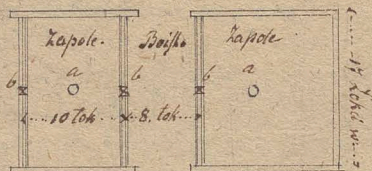 Zapole. Boisko Zapole
a a
b b b
10 łok 8. łok
17 Łokciów